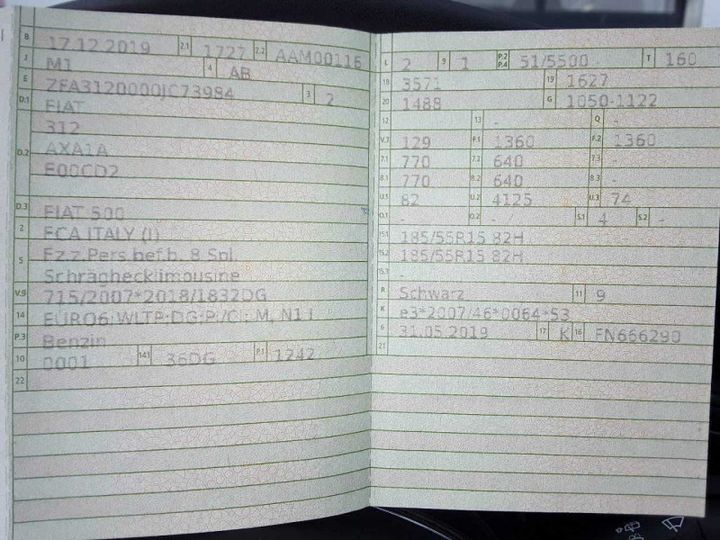 B 17.12.2019 2.1 1727 2.2 AAM00116
J M1 4 AB
E ZFA3120000JC73984 3 2
D.1 FIAT
312
D.2 AXA1A
E00CD2
D.3 FIAT 500
2 FCA ITALY (I)
5 Fz.z.Pers.bef.b. 8 Spl.
Schräghecklimousine
V.9 715/2007*2018/1832DG
14 EURO6;WLTP;DG;PI/CI; M, N1 I
P.3 Benzin
10 0001 14.1 36DG P.1 1242
22
L 2 9 1 P.2 P.4 51/5500 T 160
18 3571 19 1627
20 1488 G 1050-1122
12 - 13 - Q -
V.7 129 F.1 1360 F.2 1360
7.1 770 7.2 640 7.3 -
8.1 770 8.2 640 8.3 -
U.1 82 U.2 4125 U.3 74
O.1 - O.2 - / S.1 4 S.2 -
15.1 185/55R15 82H
15.2 185/55R15 82H
15.3 -
R Schwarz 11 9
K e3*2007/46*0064*53
6 31.05.2019 17 K 16 FN666290
21